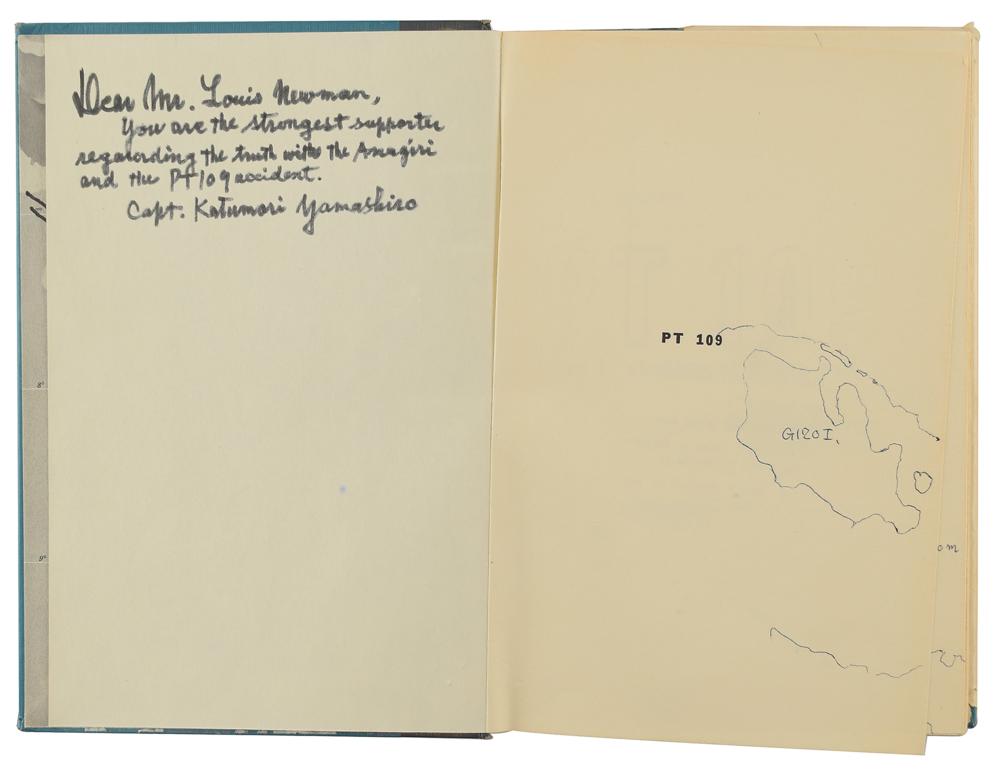 Dear Mr. Louis Newman,
You are the strongest supporter
regarording the truth with the Amagiri
and the PT109 accident.
Capt. Katumori Yamashiro
8°
9°
PT 109
GIZO I.
om